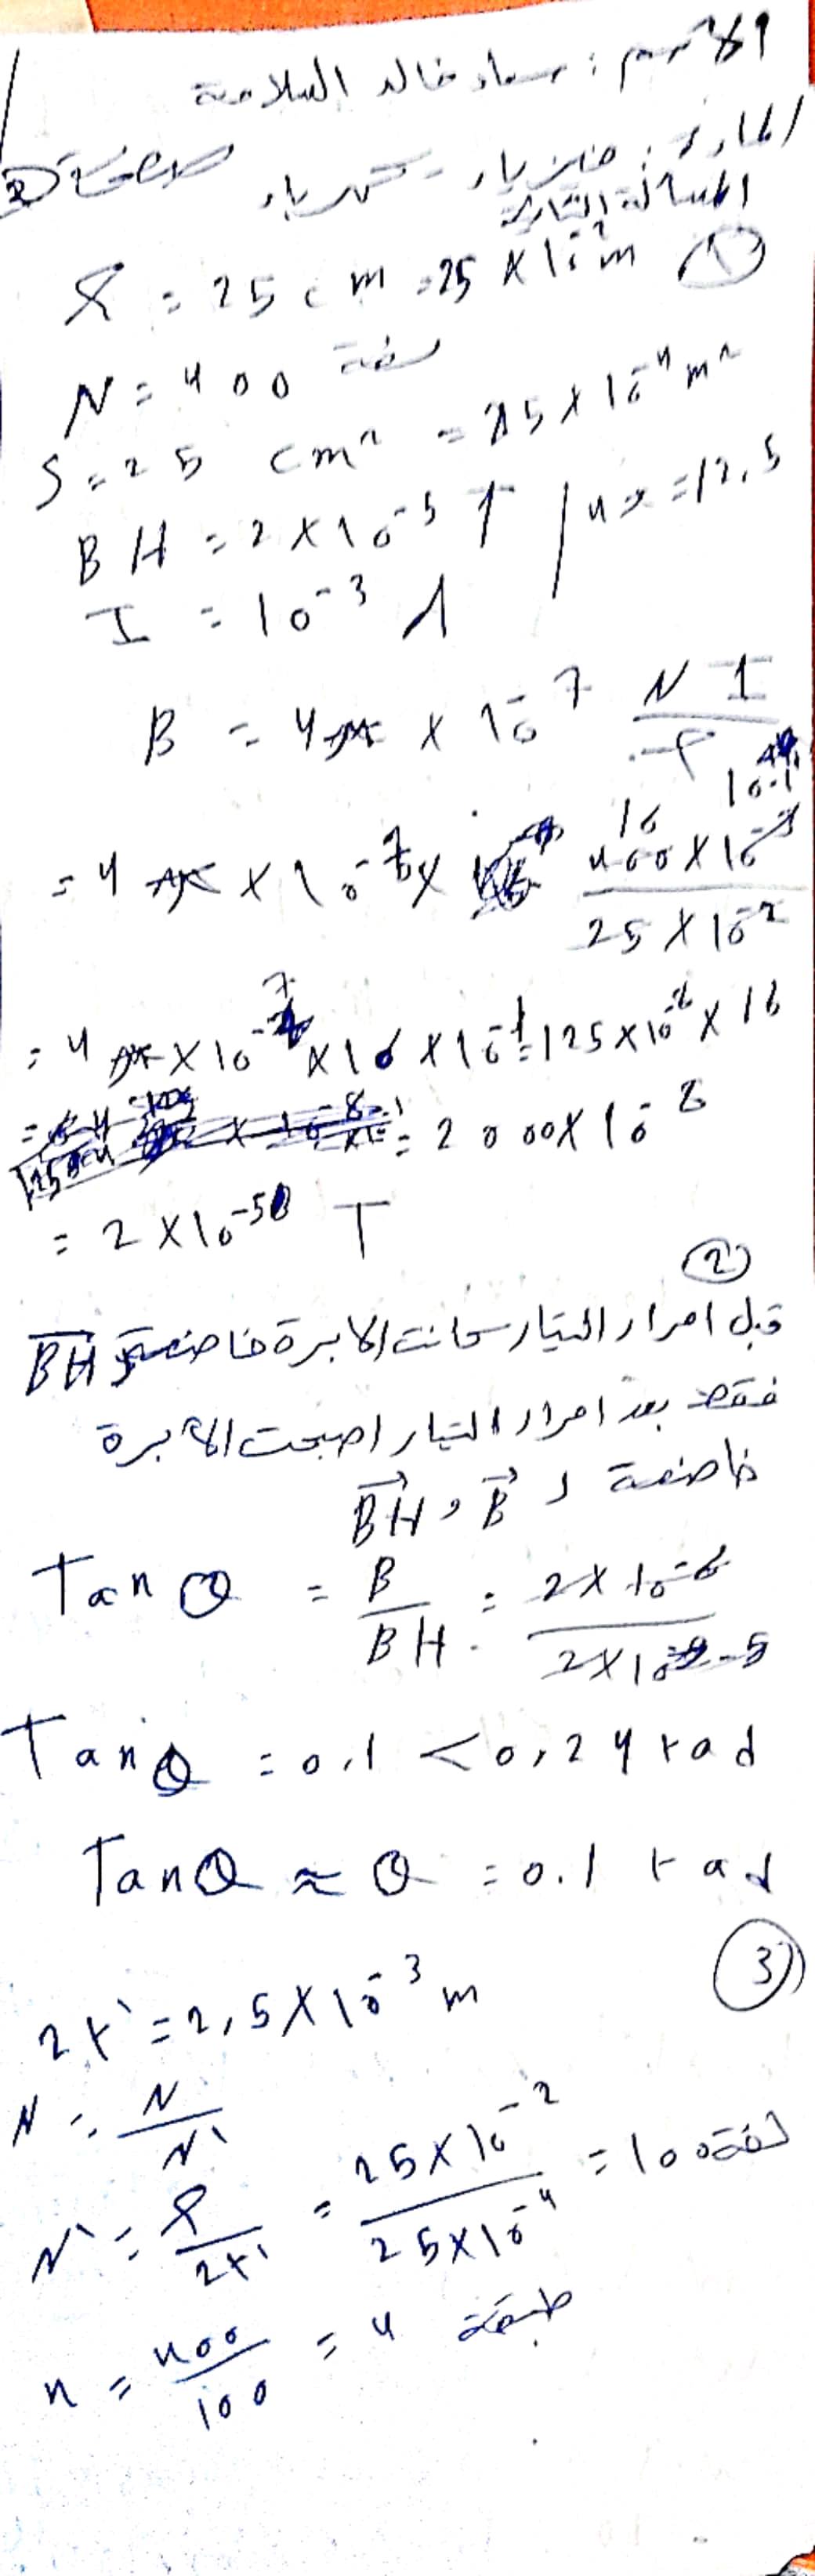 الاسم : سعاد خالد السلامة
المادة : فيزياء - كهرباء صفحة 2
المسألة الثانية
ℓ = 25 cm = 25 × 10^-2 m ①
N = 400 لفة
S = 25 cm² = 25 × 10^-4 m²
BH = 2 × 10^-5 T / 4π = 12,5
I = 10^-3 A
B = 4π × 10^-7 N I / ℓ
= 4π × 10^-7 × 400 × 10^-3 / 25 × 10^-2
= 4π × 10^-7 × 16 × 10^-1 = 125 × 10^-8 × 16
= 2000 × 10^-8
= 2 × 10^-5 T
②
قبل امرار التيار كانت الابرة خاضعة لـ BH
فقط بعد امرار التيار اصبحت الابرة
خاضعة لـ B و BH
Tan θ = B / BH = 2 × 10^-6 / 2 × 10^-5
Tan θ = 0,1 < 0,24 rad
Tan θ ≈ θ = 0.1 rad
③
2r' = 2,5 × 10^-3 m
N = N / N'
N' = ℓ / 2r' = 25 × 10^-2 / 25 × 10^-4 = 100 لفة
n = 400 / 100 = 4 طبقة